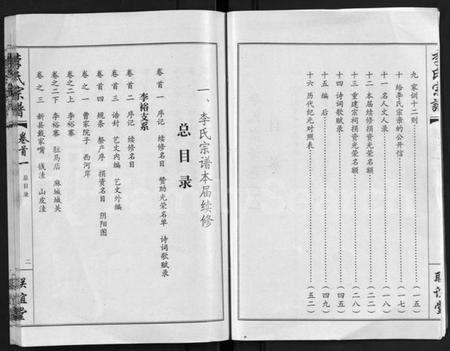 李氏宗譜
九 家訓十二則 (一五)
十 給李氏宗親的公開信 (一七)
十一 名人文人录 (一八)
十二 本届續修撰資光荣名額 (二二)
十三 重建宗祠撰資光荣名額 (二八)
十四 詩词歌赋录 (四五)
十五 编后 (四九)
十六 历代纪元对照表 (五二)
联宜堂
一、李氏宗谱本届续修
总目录
卷首一 序记 续修名目 赞助光荣名单 诗词歌赋录
李裕支系
卷首二 序记 续修名目
卷首三 诰封 艺文内编 艺文外编
卷首四 规条 祭产序 撰资名目 阴阳图
卷之一 曹家院子 西河岸
卷之二上 李裕寨
卷之二下 李裕寨 驻马店 麻城城关
卷之三 新县戴家嘴 钱洼 山皮洼
李氏宗谱
卷首一
总目录
二
联宜堂